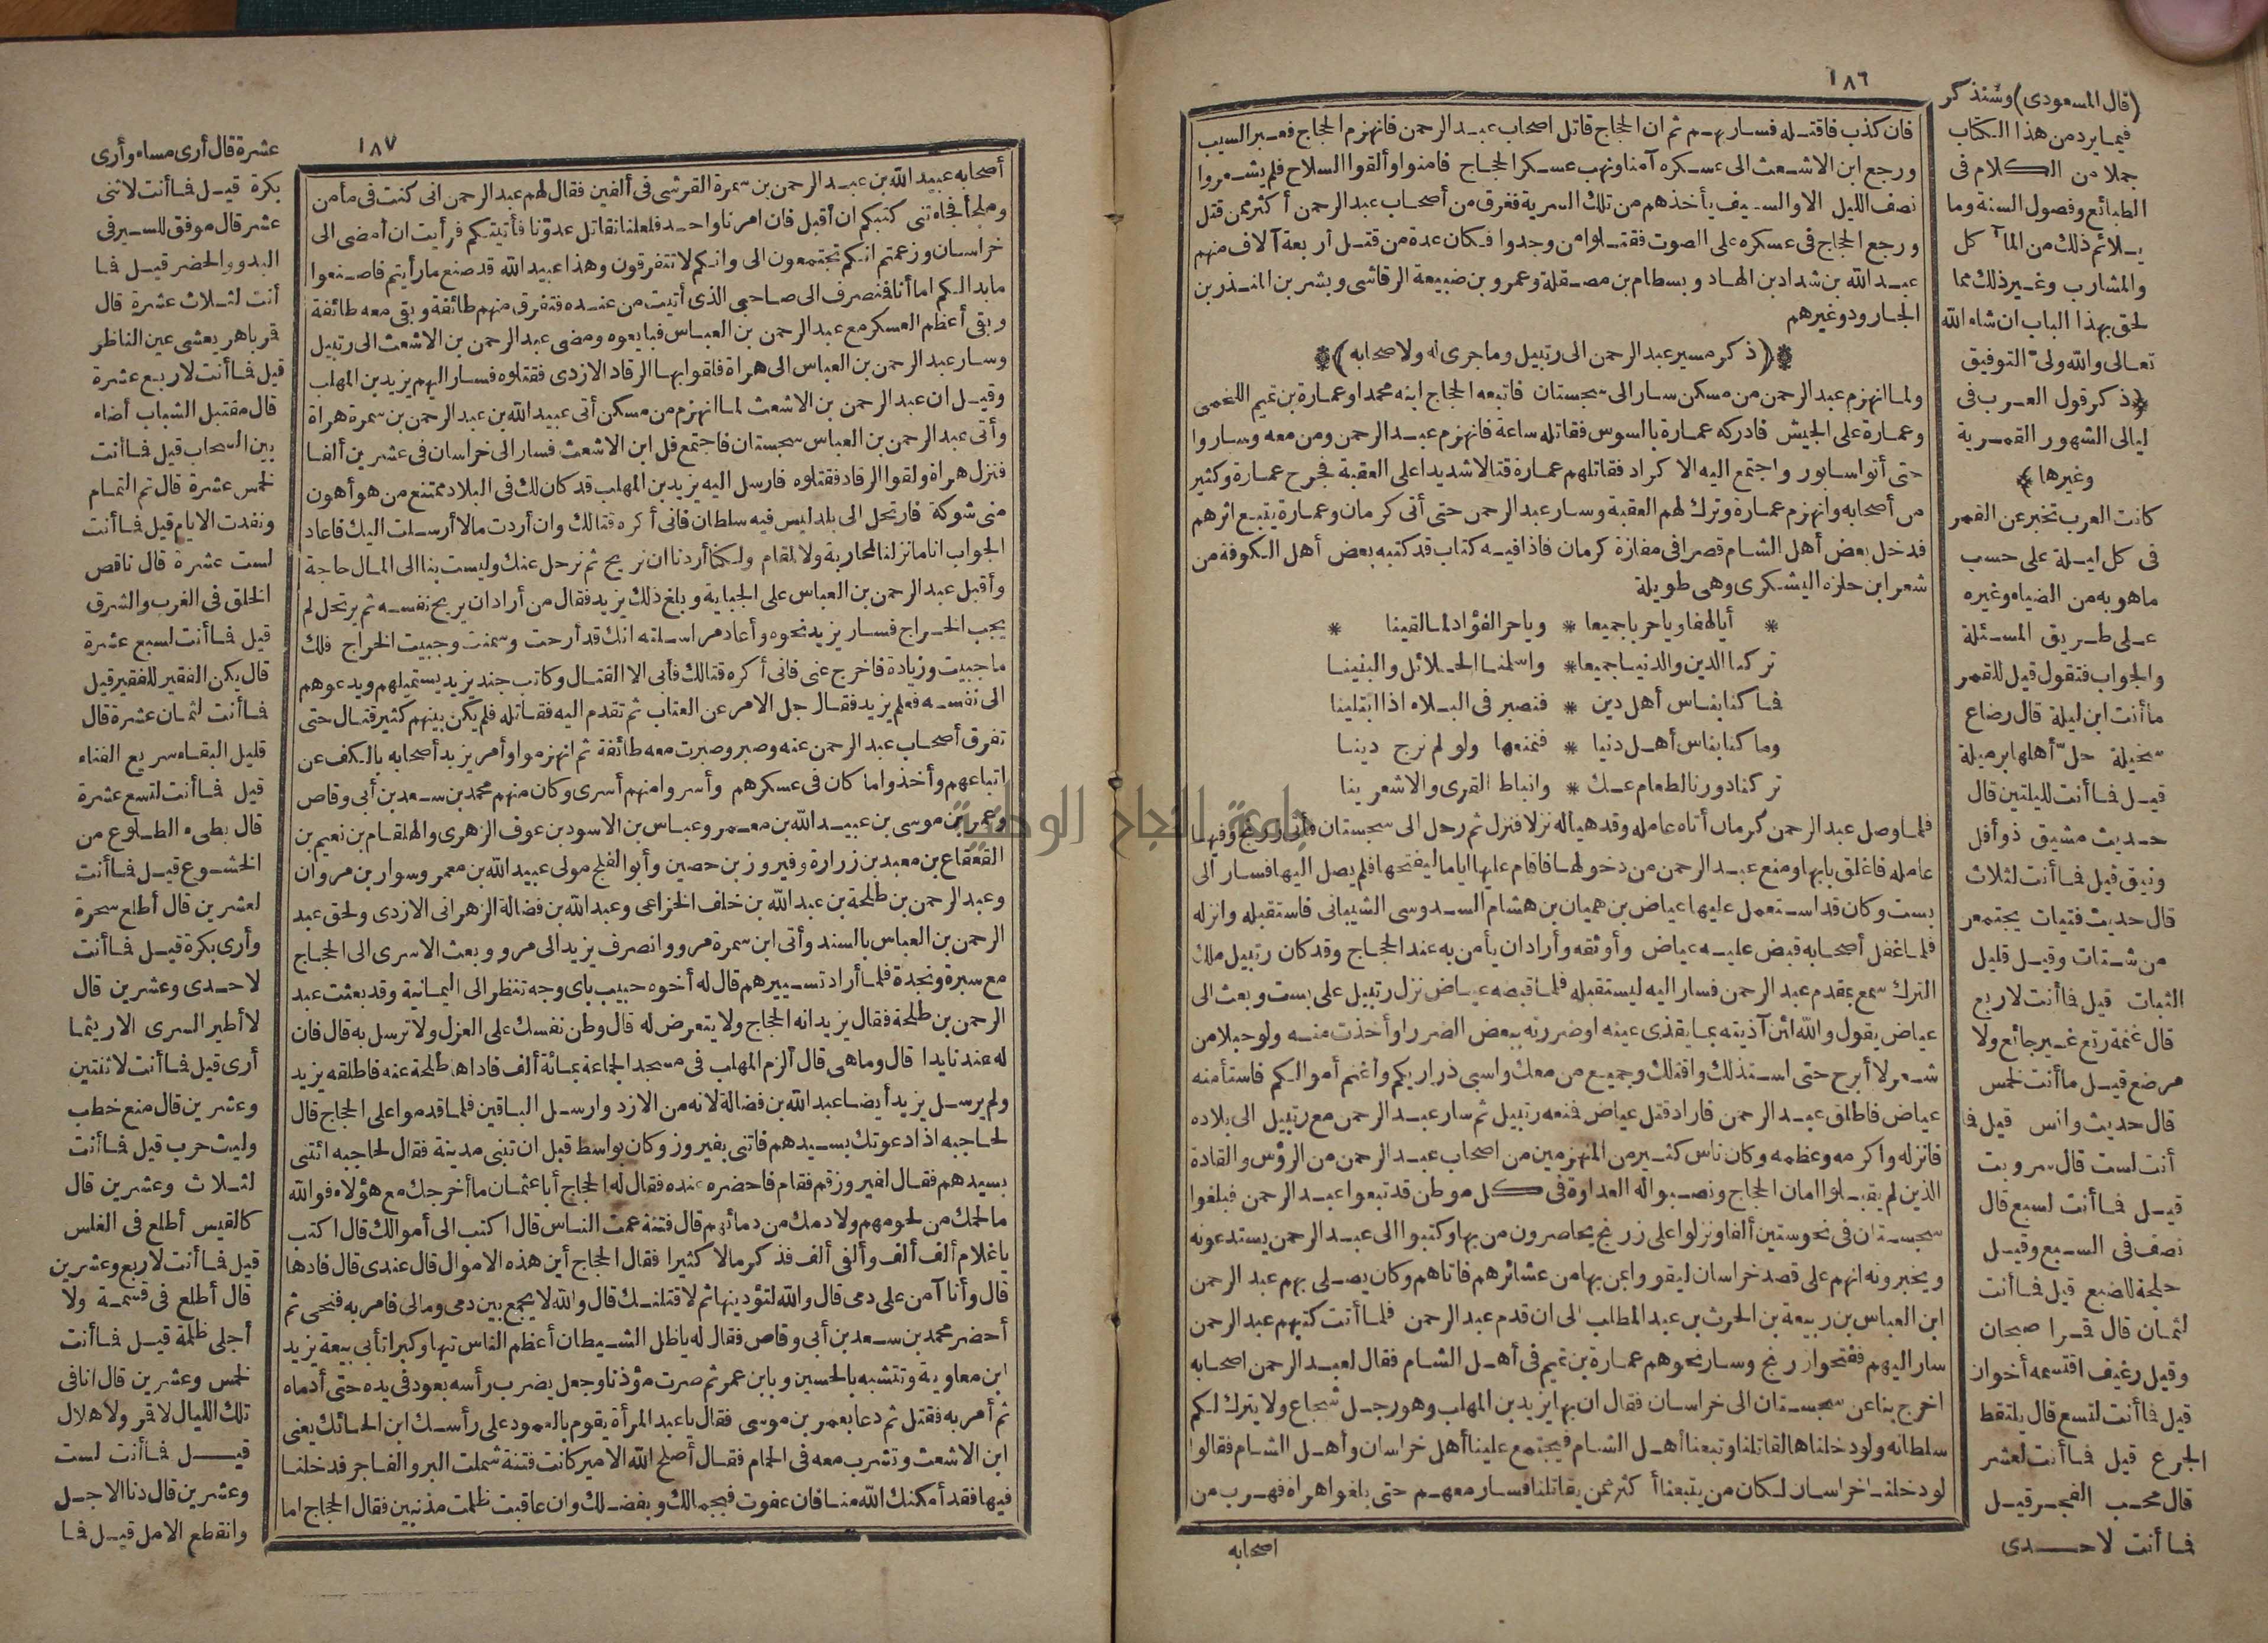 ١٨٦
فان كذب فاقتله فسار بهم ثم ان الحجاج قاتل اصحاب عبد الرحمن فانهزم الحجاج فعبر السيب
ورجع ابن الاشعث الى عسكره آمنا ونهب عسكر الحجاج فامنوا وألقوا السلاح فلم يشعروا
نصف الليل الا والسيف يأخذهم من تلك السرية فغرق من أصحاب عبد الرحمن أكثر ممن قتل
ورجع الحجاج فى عسكره على الصوت فقتلوا من وجدوا فكان عدة من قتل أربعة آلاف منهم
عبد الله بن شداد بن الهاد وبسطام بن مصقلة وعمرو بن ضبيعة الرقاشى وبشر بن المنذر بن
الجارود وغيرهم
*(ذكر مسير عبد الرحمن الى رتبيل وما جرى له ولاصحابه)*
ولما انهزم عبد الرحمن من مسكن سار الى سجستان فاتبعه الحجاج ابنه محمدا وعمارة بن تميم اللخمى
وعمارة على الجيش فادركه عمارة بالسوس فقاتله ساعة فانهزم عبد الرحمن ومن معه وساروا
حتى أتوا سابور واجتمع اليه الاكراد فقاتلهم عمارة قتالا شديدا على العقبة فجرح عمارة وكثير
من أصحابه وانهزم عمارة وترك لهم العقبة وسار عبد الرحمن حتى أتى كرمان وعمارة يتبع اثرهم
فدخل بعض أهل الشام قصرا فى مفازة كرمان فاذا فيه كتاب قد كتبه بعض أهل الكوفة من
شعر ابن حلزه اليشكرى وهى طويلة
* أيا لهفا ويا حر يا جميعا * ويا حر الفؤاد لما لقينا *
تركنا الدين والدنيا جميعا * واسلمنا الحلائل والبنينا
فما كنا بناس أهل دين * فنصبر فى البلاء اذا ابتلينا
وما كنا بناس أهل دنيا * فنمنعها ولو لم نرج دينا
تركنا دورنا لطغام عك * وانباط القرى والاشعرينا
فلما وصل عبد الرحمن كرمان أتاه عامله وقد هيأ له نزلا فنزل ثم رحل الى سجستان فأتى زرنج وفيها
عامله فاغلق بابها ومنع عبد الرحمن من دخولها فاقام عليها اياما ليفتحها فلم يصل اليها فسار الى
بست وكان قد استعمل عليها عياض بن هميان بن هشام السدوسى الشيبانى فاستقبله وانزله
فلما غفل أصحابه قبض عليه عياض وأوثقه وأراد ان يأمن به عند الحجاج وقد كان رتبيل ملك
الترك سمع بمقدم عبد الرحمن فسار اليه ليستقبله فلما قبضه عياض نزل رتبيل على بست وبعث الى
عياض يقول والله لئن آذيته بما يقذى عينه او ضررته ببعض الضرر او أخذت منه ولو حبلا من
شعر لا أبرح حتى استنذلك واقتلك وجميع من معك واسبى ذراريكم وأغنم أموالكم فاستأمنه
عياض فاطلق عبد الرحمن فاراد قتل عياض فنعه رتبيل ثم سار عبد الرحمن مع رتبيل الى بلاده
فانزله وأكرمه وعظمه وكان ناس كثير من المنهزمين من اصحاب عبد الرحمن من الرؤس والقادة
الذين لم يقبلوا امان الحجاج ونصبوا له العداوة فى كل موطن قد تبعوا عبد الرحمن فبلغوا
سجستان فى نحو ستين ألفا ونزلوا على زرنج يحاصرون من بها وكتبوا الى عبد الرحمن يستدعونه
ويخبرونه انهم على قصد خراسان ليقووا بمن بها من عشائرهم فاتاهم وكان يصلى بهم عبد الرحمن
ابن العباس بن ربيعة بن الحرث بن عبد المطلب الى ان قدم عبد الرحمن فلما أتت كتبهم عبد الرحمن
سار اليهم ففتحوا زرنج وسار نحوهم عمارة بن تميم فى أهل الشام فقال لعبد الرحمن اصحابه
اخرج بنا عن سجستان الى خراسان فقال ان بها يزيد بن المهلب وهو رجل شجاع ولا يترك لكم
سلطانه ولو دخلناها لقاتلنا وتبعنا أهل الشام فيجتمع علينا أهل خراسان وأهل الشام فقالوا
لو دخلنا خراسان لكان من يتبعنا أكثر ممن يقاتلنا فسار معهم حتى بلغوا هراة فهرب من
اصحابه
(قال المسعودى) وسنذكر
فيما يرد من هذا الكتاب
جملا من الكلام فى
الطبائع وفصول السنة وما
يلائم ذلك من المآكل
والمشارب وغير ذلك مما
لحق بهذا الباب ان شاء الله
تعالى والله ولىّ التوفيق
﴿ذكر قول العرب فى
ليالى الشهور القمرية
وغيرها﴾
كانت العرب تخبر عن القمر
فى كل ليلة على حسب
ما هو به من الضياء وغيره
على طريق المسئلة
والجواب فتقول قيل للقمر
ما أنت ابن ليلة قال رضاع
سخيلة حلّ أهلها برميلة
قيل فما أنت لليلتين قال
حديث مشيق ذو أفل
ونيق قيل فما أنت لثلاث
قال حديث فتيات يجتمعن
من شتات وقيل قليل
الثبات قيل فما أنت لاربع
قال غنمة رتع غير جائع ولا
مرضع قيل ما أنت لخمس
قال حديث وانس قيل فما
أنت لست قال سر وبت
قيل فما أنت لسبع قال
نصف فى السبع وقيل
حلجة للضبع قيل فما أنت
لثمان قال قمرا صبحان
وقيل رغيف اقتسمه أخوان
قيل فما أنت لتسع قال يلتقط
الجزع قيل فما أنت لعشر
قال محب الفجر قيل
فما أنت لاحدى
١٨٧
أصحابه عبيد الله بن عبد الرحمن بن سمرة القرشى فى ألفين فقال لهم عبد الرحمن انى كنت فى مأمن
وملجأ فجاءتنى كتبكم ان أقبل فان امرنا واحد فلعلنا نقاتل عدوّنا فأتيتكم فرأيت ان أمضى الى
خراسان وزعمتم انكم تجتمعون الى وانكم لا تتفرقون وهذا عبيد الله قد صنع ما رأيتم فاصنعوا
ما بدا لكم اما أنا فمنصرف الى صاحبى الذى أتيت من عنده فتفرق منهم طائفة وبقى معه طائفة
وبقى أعظم العسكر مع عبد الرحمن بن العباس فبايعوه ومضى عبد الرحمن بن الاشعث الى رتبيل
وسار عبد الرحمن بن العباس الى هراة فلقوا بها الرقاد الازدى فقتلوه فسار اليهم يزيد بن المهلب
وقيل ان عبد الرحمن بن الاشعث لما انهزم من مسكن أتى عبيد الله بن عبد الرحمن بن سمرة هراة
وأتى عبد الرحمن بن العباس سجستان فاجتمع فل ابن الاشعث فسار الى خراسان فى عشرين ألفا
فنزل هراة ولقوا الرقاد فقتلوه فارسل اليه يزيد بن المهلب قد كان لك فى البلاد ممتنع من هو أهون
منى شوكة فارتحل الى بلد ليس فيه سلطان فانى أكره قتالك وان أردت مالا أرسلت اليك فاعاد
الجواب انا ما نزلنا لمحاربة ولا لمقام ولكنا أردنا ان نريح ثم نرحل عنك وليست بنا الى المال حاجة
وأقبل عبد الرحمن بن العباس على الجباية وبلغ ذلك يزيد فقال من أراد ان يريح نفسه ثم يرتحل لم
يجب الخراج فسار يزيد نحوه وأعاد مراسلته انك قد أرحت وسمنت وجبيت الخراج فلك
ما جبيت وزيادة فاخرج عنى فانى أكره قتالك فأبى الا القتال وكاتب جند يزيد يستميلهم ويدعوهم
الى نفسه فعلم يزيد فقال جل الامر عن العتاب ثم تقدم اليه فقاتله فلم يكن بينهم كثير قتال حتى
تفرق أصحاب عبد الرحمن عنه وصبر وصبرت معه طائفة ثم انهزموا وأمر يزيد أصحابه بالكف عن
اتباعهم وأخذوا ما كان فى عسكرهم وأسروا منهم أسرى وكان منهم محمد بن سعد بن أبى وقاص
وعمر بن موسى بن عبيد الله بن معمر وعباس بن الاسود بن عوف الزهرى والهلقام بن نعيم بن
القعقاع بن معبد بن زرارة وفيروز بن حصين وأبو الفلج مولى عبيد الله بن معمر وسوار بن مروان
وعبد الرحمن بن طلحة بن عبد الله بن خلف الخزاعى وعبد الله بن فضالة الزهرانى الازدى ولحق عبد
الرحمن بن العباس بالسند وأتى ابن سمرة مرو وانصرف يزيد الى مرو وبعث الاسرى الى الحجاج
مع سبرة ونجدة فلما أراد تسييرهم قال له أخوه حبيب باى وجه تنظر الى اليمانية وقد بعثت عبد
الرحمن بن طلحة فقال يزيد انه الحجاج ولا يتعرض له قال وطن نفسك على العزل ولا ترسل به قال فان
له عندنا يدا قال وما هى قال ألزم المهلب فى مسجد الجماعة بمائة ألف فاداها طلحة عنه فاطلقه يزيد
ولم يرسل يزيد أيضا عبد الله بن فضالة لانه من الازد وارسل الباقين فلما قدموا على الحجاج قال
لحاجبه اذا دعوتك بسيدهم فاتنى بفيروز وكان بواسط قبل ان تبنى مدينة فقال لحاجبه ائتنى
بسيدهم فقال لفيروز قم فقام فاحضره عنده فقال له الحجاج أبا عثمان ما أخرجك مع هؤلاء فوالله
ما لحمك من لحومهم ولا دمك من دمائهم قال فتنة عمت الناس قال اكتب الى أموالك قال اكتب
يا غلام ألف ألف وألفى ألف فذكر مالا كثيرا فقال الحجاج أين هذه الاموال قال عندى قال فادها
قال وأنا آمن على دمى قال والله لتؤدينها ثم لاقتلنك قال والله لا يجمع بين دمى ومالى فامر به فنحى ثم
أحضر محمد بن سعد بن أبى وقاص فقال له يا ظل الشيطان أعظم الناس تيها وكبرا تأبى بيعة يزيد
ابن معاوية وتتشبه بالحسين وبابن عمر ثم صرت مؤذنا وجعل يضرب رأسه بعود فى يده حتى أدماه
ثم أمر به فقتل ثم دعا بعمر بن موسى فقال يا عبد المرأة يقوم بالعمود على رأسك ابن الحائك يعنى
ابن الاشعث وتشرب معه فى الحمام فقال أصلح الله الامير كانت فتنة شملت البر والفاجر فدخلنا
فيها فقد أمكنك الله منا فان عفوت فبحمالك وبفضلك وان عاقبت ظلمت مذنبين فقال الحجاج اما
عشرة قال أرى مساء وأرى
بكرة قيل فما أنت لاثنى
عشر قال موفق للسير فى
البدو والحضر قيل فما
أنت لثلاث عشرة قال
قمر باهر يعشى عين الناظر
قيل فما أنت لاربع عشرة
قال مقتبل الشباب أضاء
بين السحاب قيل فما أنت
لخمس عشرة قال تم التمام
ونفدت الايام قيل فما أنت
لست عشرة قال ناقص
الخلق فى الغرب والشرق
قيل فما أنت لسبع عشرة
قال يكن الفقير للفقير قيل
فما أنت لثمان عشرة قال
قليل البقاء سريع الفناء
قيل فما أنت لتسع عشرة
قال بطىء الطلوع من
الخشوع قيل فما أنت
لعشرين قال أطلع سحرة
وأرى بكرة قيل فما أنت
لاحدى وعشرين قال
لا أطير السرى الا ريثما
أرى قيل فما أنت لاثنتين
وعشرين قال منع خطب
وليث حرب قيل فما أنت
لثلاث وعشرين قال
كالقبس أطلع فى الغلس
قيل فما أنت لاربع وعشرين
قال أطلع فى قتمة ولا
أجلى ظلمة قيل فما أنت
لخمس وعشرين قال انا فى
تلك الليال لا قمر ولا هلال
قيل فما أنت لست
وعشرين قال دنا الاجل
وانقطع الامل قيل فما
جامعة النجاح الوطنية